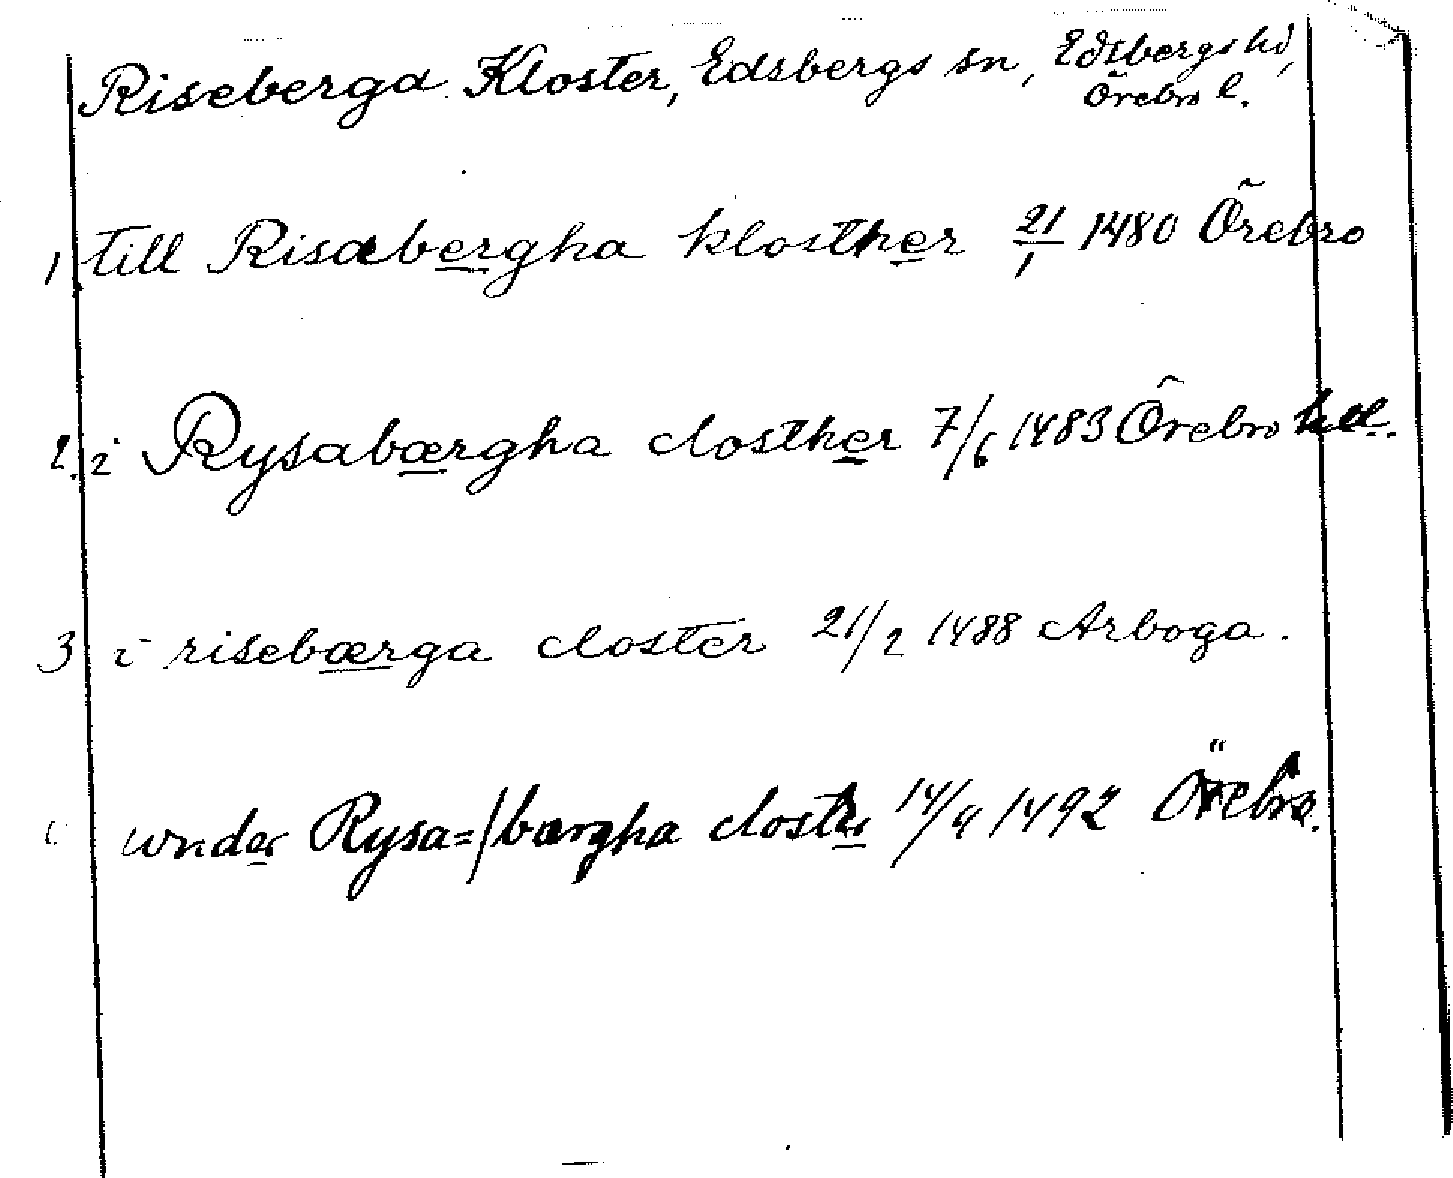 Riseberga Kloster, Edsbergs sn, Edsbergs hd,
Örebro l.
1 till Risæbergha klosther 21/1 1480 Örebro
2. i Rysabærgha closther 7/6 1483 Örebro
3 i risebærga closter 21/2 1488 Arboga.
wnder Rysa=/bærgha closter 14/4 1492 Örebro.